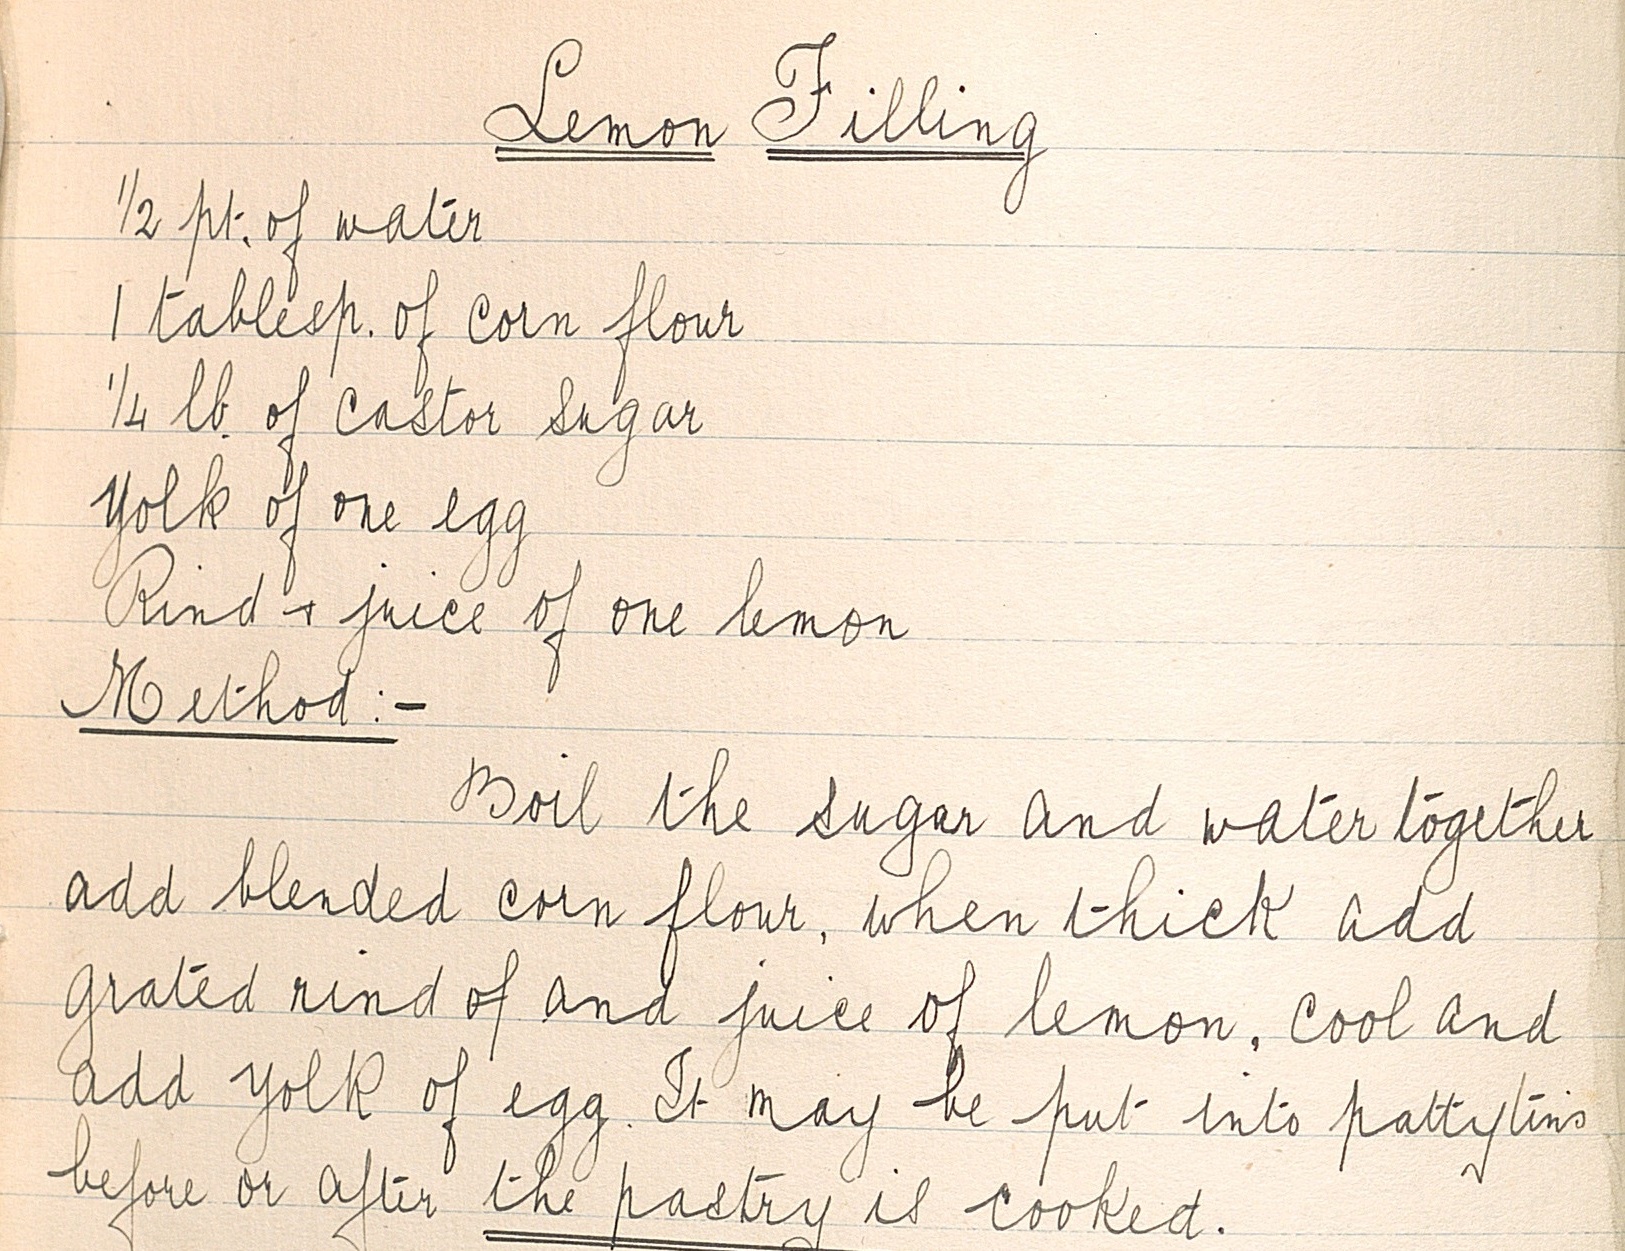 Lemon Filling
1/2 pt. of water
1 tablesp. of corn flour
1/4 lb. of castor sugar
Yolk of one egg
Rind + juice of one lemon
Method:-
Boil the sugar and water together
add blended corn flour, when thick add
grated rind of and juice of lemon, cool and
add yolk of egg. It may be put into pattytins
before or after the pastry is cooked.